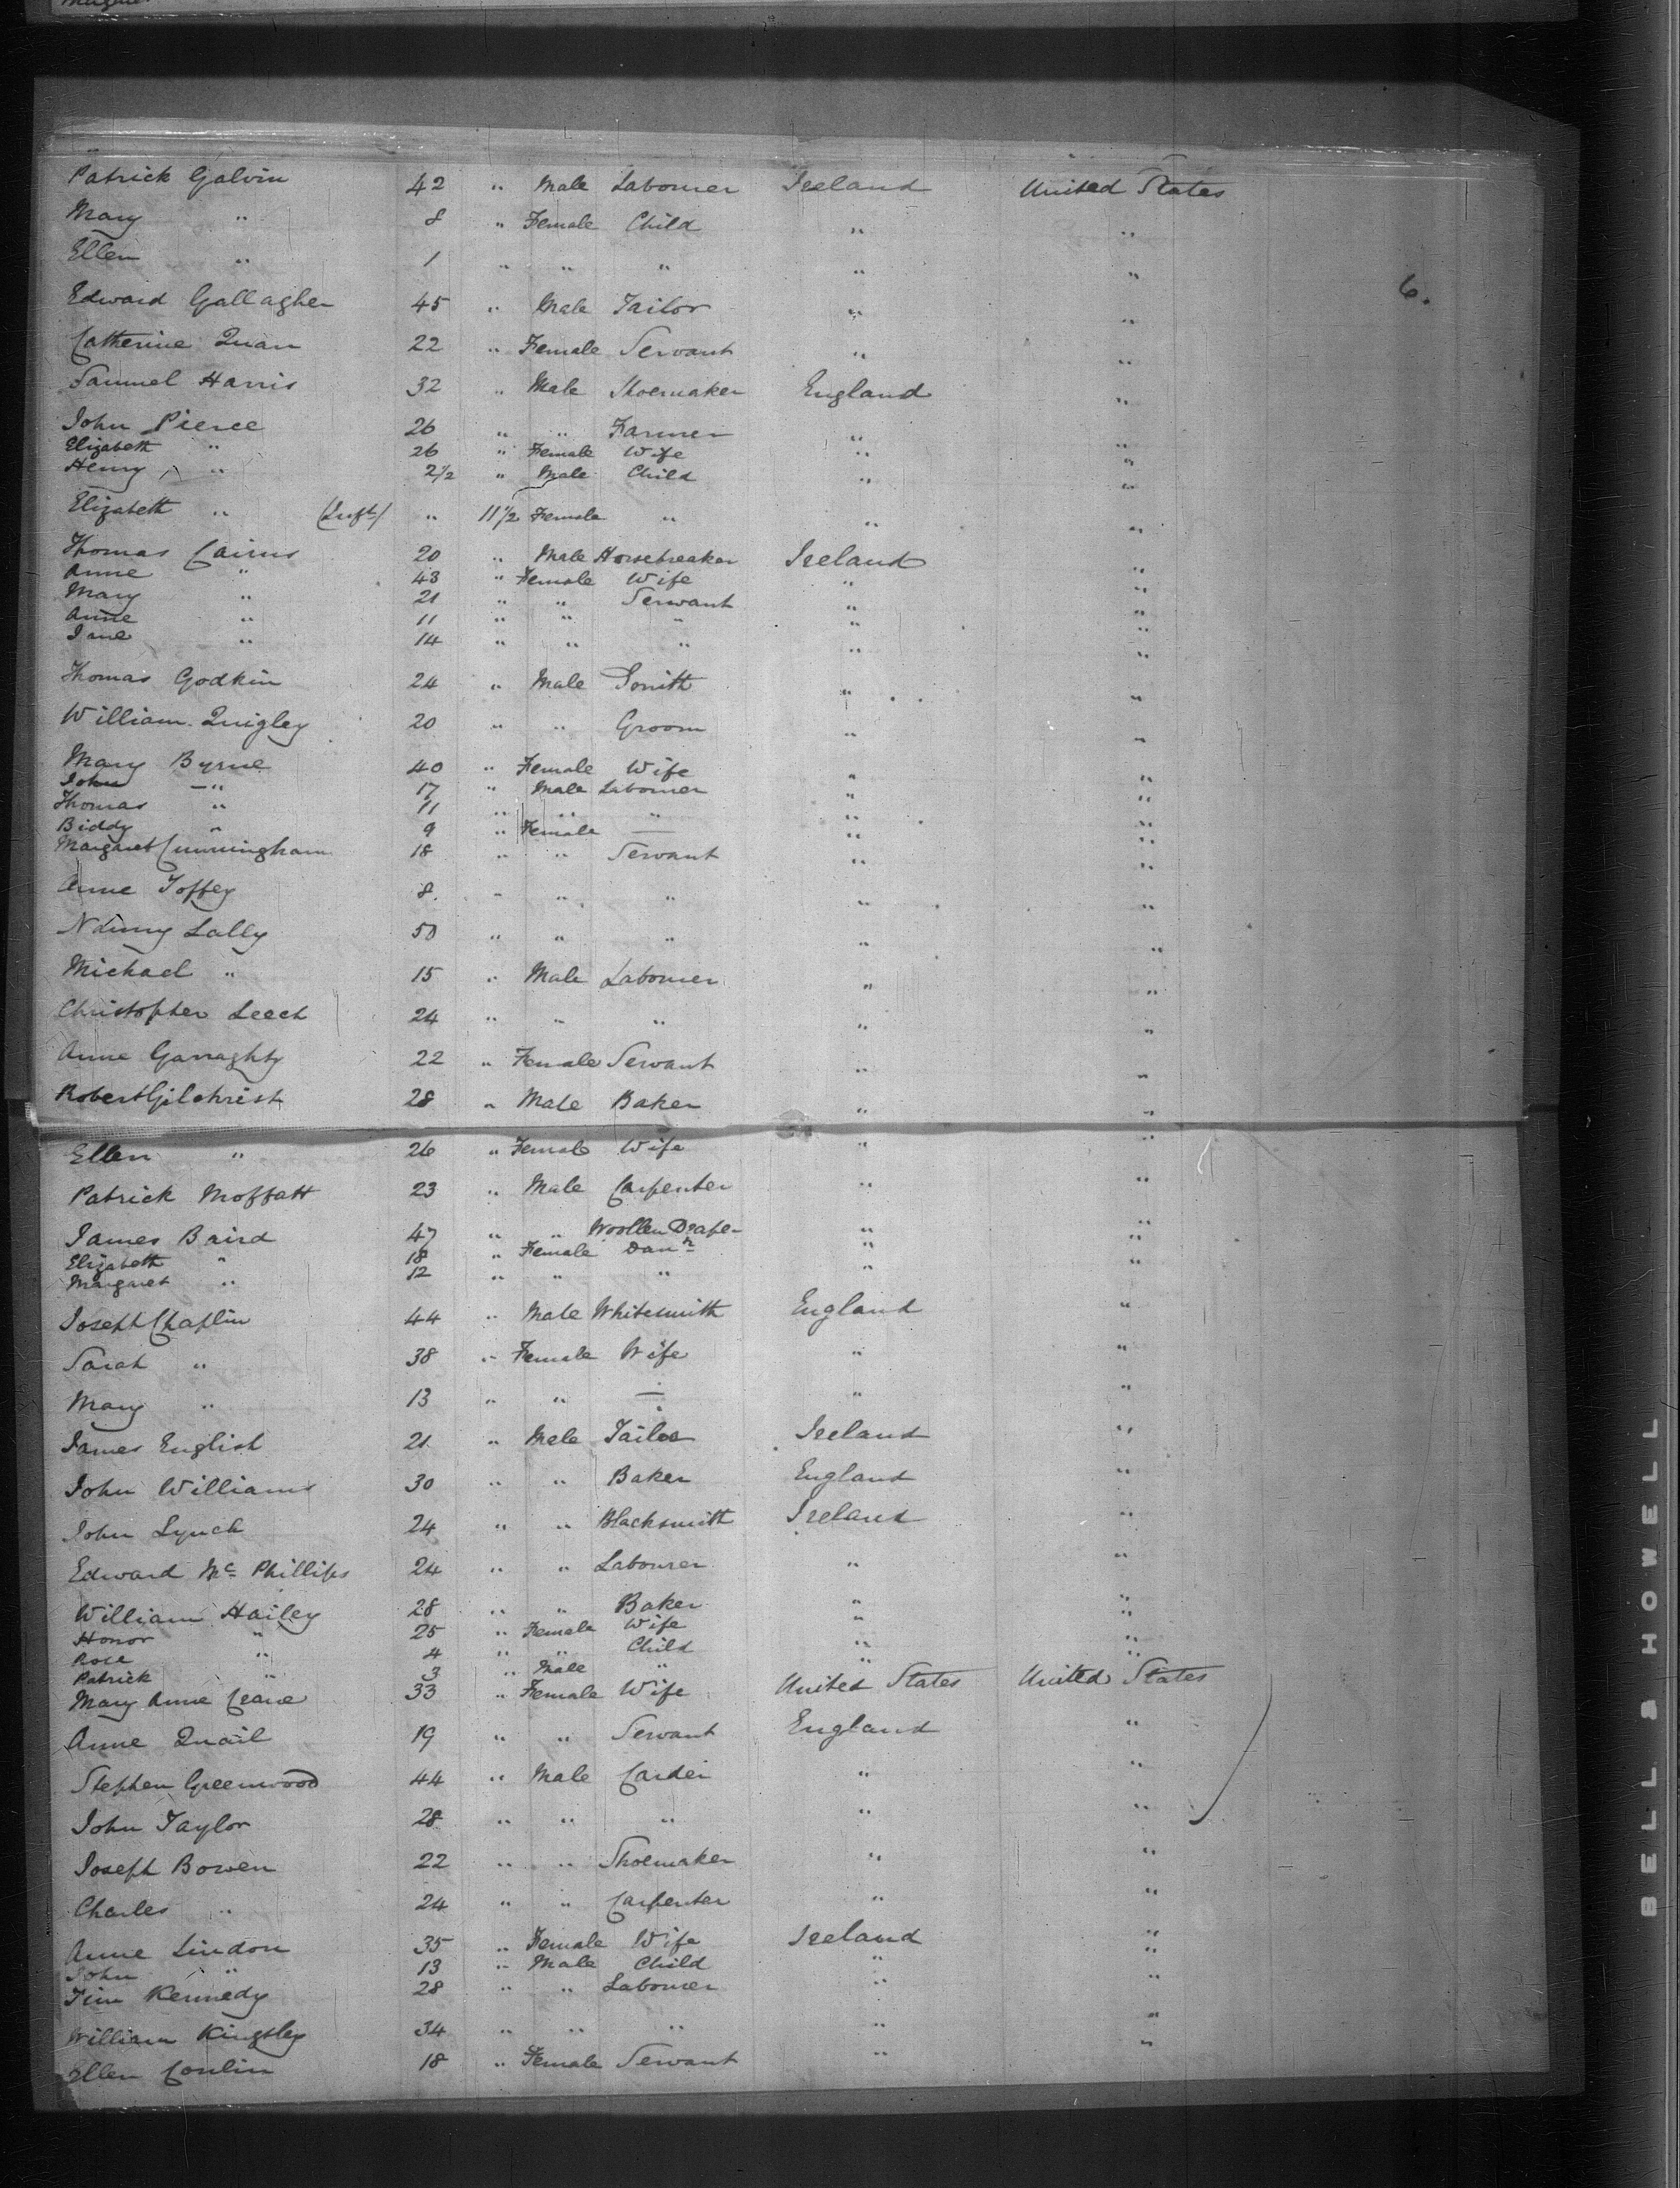 Patrick Galvin 42 " Male Labourer Ireland United States
Mary " 8 " Female Child " "
Ellen " 1 " " " " "
6.
Edward Gallagher 45 " Male Tailor " "
Catherine Quan 22 " Female Servant " "
Samuel Harris 32 " Male Shoemaker England "
John Pierce 26 " " Farmer " "
Elizabeth " 26 " Female Wife " "
Henry " 2 1/2 " Male Child " "
Elizabeth " (Inft) " 11 1/2 Female " " "
Thomas Cairns 20 " Male Horsebreaker Ireland "
Anne " 43 " Female Wife " "
Mary " 21 " " Servant " "
Anne " 11 " " " " "
Jane " 14 " " " " "
Thomas Godkin 24 " Male Smith " "
William Quigley 20 " " Groom " "
Mary Byrne 40 " Female Wife " "
John " 17 " Male Labourer " "
Thomas " 11 " " " " "
Biddy " 9 " Female — " "
Margaret Cunningham 18 " " Servant " "
Anne Toffey 8 " " " " "
Lally 50 " " " " "
Michael " 15 " Male Labourer " "
Christopher Leech 24 " " " " "
Anne Garraghty 22 " Female Servant " "
Robert Gilchrist 28 " Male Baker " "
Ellen " 26 " Female Wife " "
Patrick Moffatt 23 " Male Carpenter " "
James Baird 47 " " Woollen Draper " "
Elizabeth " 18 " Female Daur " "
Margaret " 12 " " " " "
Joseph Chaplin 44 " Male Whitesmith England "
Sarah " 38 " Female Wife " "
Mary " 13 " " — " "
James English 21 " Male Tailor Ireland "
John Williams 30 " " Baker England "
John Lynch 24 " " Blacksmith Ireland "
Edward Mc Phillips 24 " " Labourer " "
William Hailey 28 " " Baker " "
Honor " 25 " Female Wife " "
Rose " 4 " " Child " "
Patrick " 3 " Male " " "
Mary Anne Crane 33 " Female Wife United States United States
Anne Quail 19 " " Servant England "
Stephen Greenwood 44 " Male Carder " "
John Taylor 28 " " " " "
Joseph Bowen 22 " " Shoemaker " "
Charles " 24 " " Carpenter " "
Anne Lindon 35 " Female Wife Ireland "
John " 13 " Male Child " "
Tim Kennedy 28 " " Labourer " "
William Kingsley 34 " " " " "
Ellen Conlin 18 " Female Servant " "
BELL & HOWELL